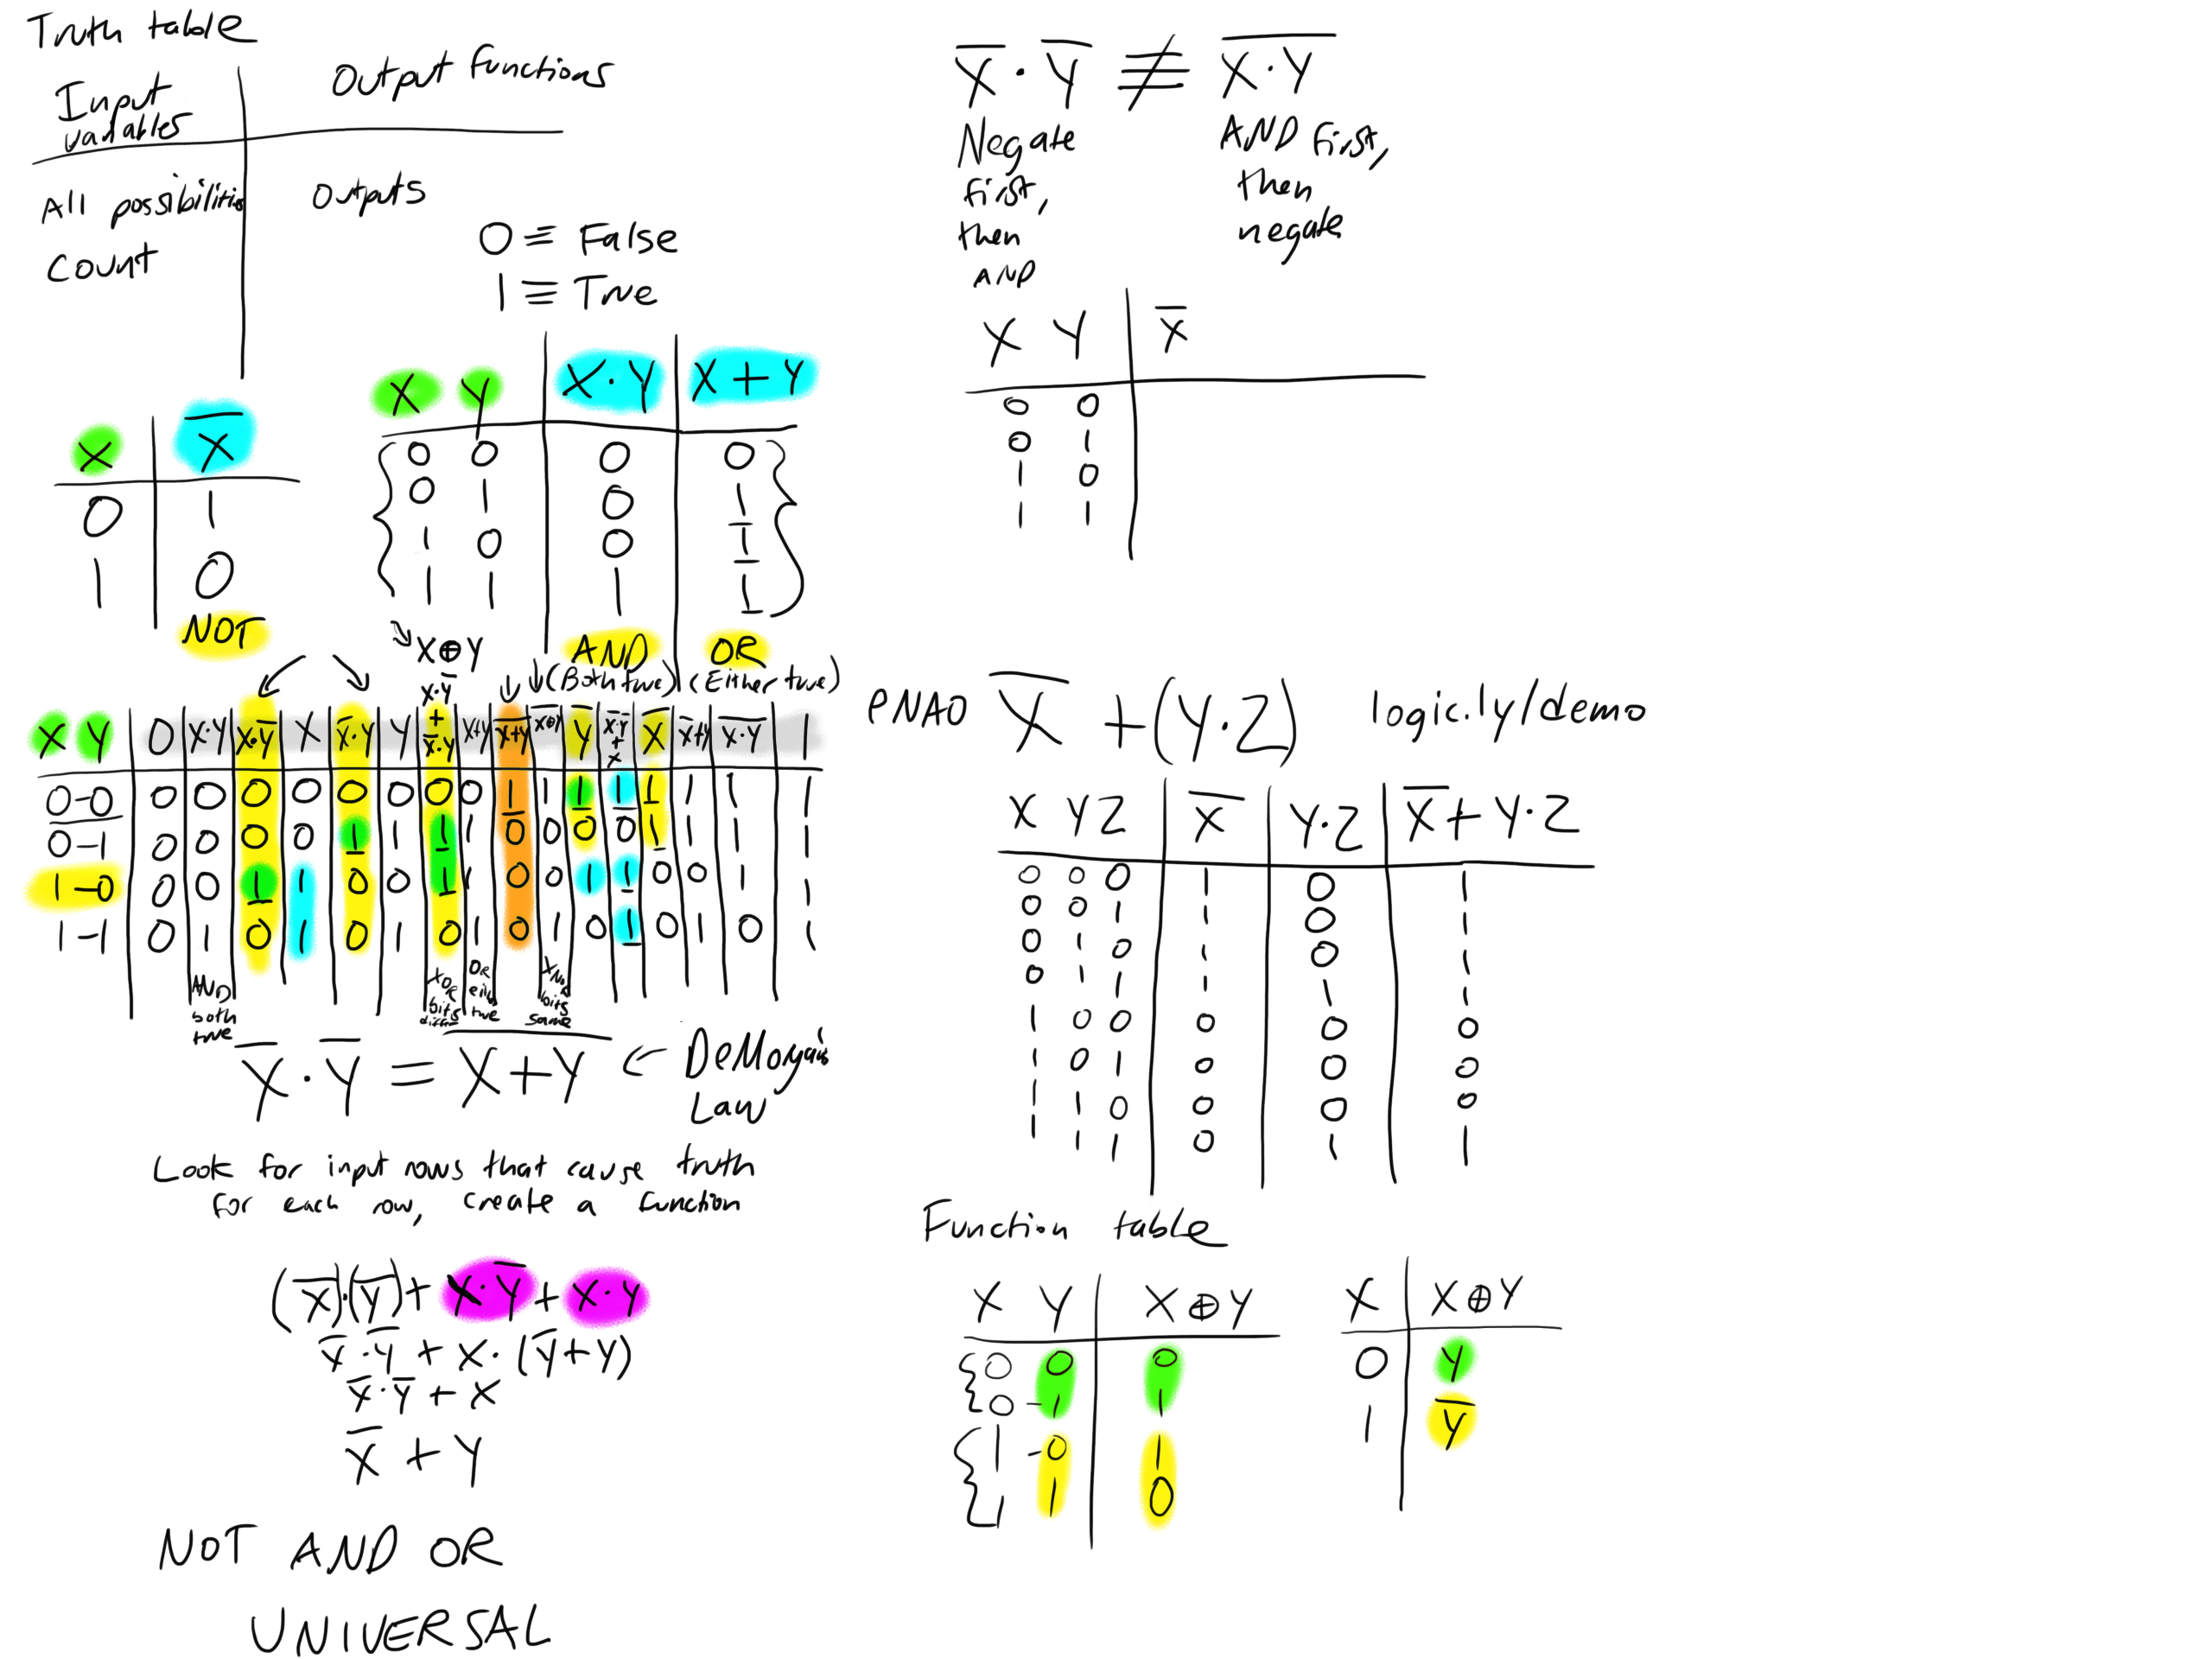 Truth table
Input variables | Output functions
All possibilities | Outputs
Count
0 ≡ False
1 ≡ True
X | X̅
0 | 1
1 | 0
NOT
X Y | X·Y | X+Y
0 0 | 0 | 0
0 1 | 0 | 1
1 0 | 0 | 1
1 1 | 1 | 1
AND OR
(Both true) (Either true)
X⊕Y
X Y | 0 | X·Y | X·Y̅ | X | X̅·Y | Y | X·Y̅ + X̅·Y | X+Y | \overline{X+Y} | \overline{X⊕Y} | Y̅ | X̅·Y̅ + X | X̅ | X̅+Y | \overline{X·Y} | 1
0-0 | 0 | 0 | 0 | 0 | 0 | 0 | 0 | 0 | 1 | 1 | 1 | 1 | 1 | 1 | 1 | 1
0-1 | 0 | 0 | 0 | 0 | 1 | 1 | 1 | 1 | 0 | 0 | 0 | 0 | 1 | 1 | 1 | 1
1-0 | 0 | 0 | 1 | 1 | 0 | 0 | 1 | 1 | 0 | 0 | 1 | 1 | 0 | 0 | 1 | 1
1-1 | 0 | 1 | 0 | 1 | 0 | 1 | 0 | 1 | 0 | 1 | 0 | 1 | 0 | 1 | 0 | 1
AND both true
XOR bits
OR true
XNOR bits same
X̅·Y̅ = \overline{X+Y} ← DeMorgan's Law
Look for input rows that cause truth
For each row, create a function
(X̅)·(Y̅) + X·Y̅ + X·Y
X̅·Y̅ + X·(Y̅+Y)
X̅·Y̅ + X
X̅ + Y
NOT AND OR
UNIVERSAL
X̅·Y̅ ≢ \overline{X·Y}
Negate first, then AND
AND first, then negate
X Y | X̅
0 0
0 1
1 0
1 1
PNAO X̅ + (Y·Z) logic.ly/demo
X Y Z | X̅ | Y·Z | X̅+Y·Z
0 0 0 | 1 | 0 | 1
0 0 1 | 1 | 0 | 1
0 1 0 | 1 | 0 | 1
0 1 1 | 1 | 1 | 1
1 0 0 | 0 | 0 | 0
1 0 1 | 0 | 0 | 0
1 1 0 | 0 | 0 | 0
1 1 1 | 0 | 1 | 1
Function table
X Y | X⊕Y
0 0 | 0
0-1 | 1
1-0 | 1
1 1 | 0
X | X⊕Y
0 | Y
1 | Y̅